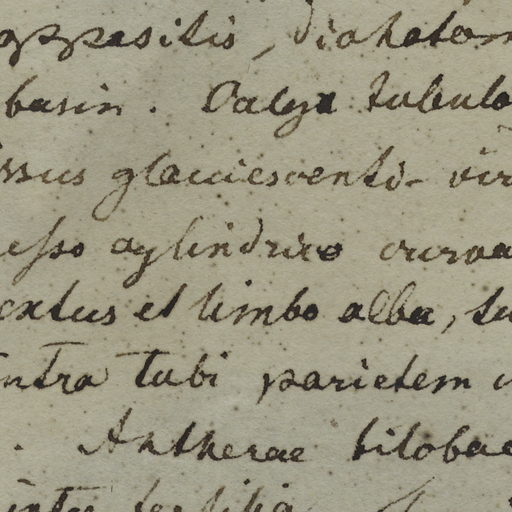 oppositis, dichotom
basin. Calyx tubulo
issus glaucescenti-vir
esso cylindrico curva
extus et limbo alba, tu
intra tubi parietem
. Antherae bilobae